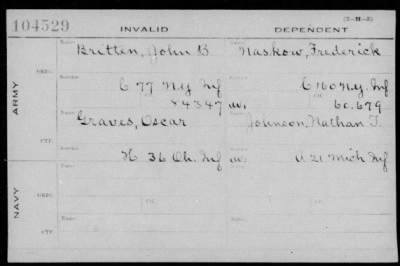 104529
(3-H-2)
INVALID DEPENDENT
Britten, John B Naskow, Frederick
ORIG.
C 77 N.Y. Inf C 160 N.Y. Inf
ARMY
84347 W. 60.679
Graves, Oscar Johnson, Nathan T.
CTF.
H 36 Oh. Inf W. A 21 Mich Inf
NAVY
ORIG.
CTF.